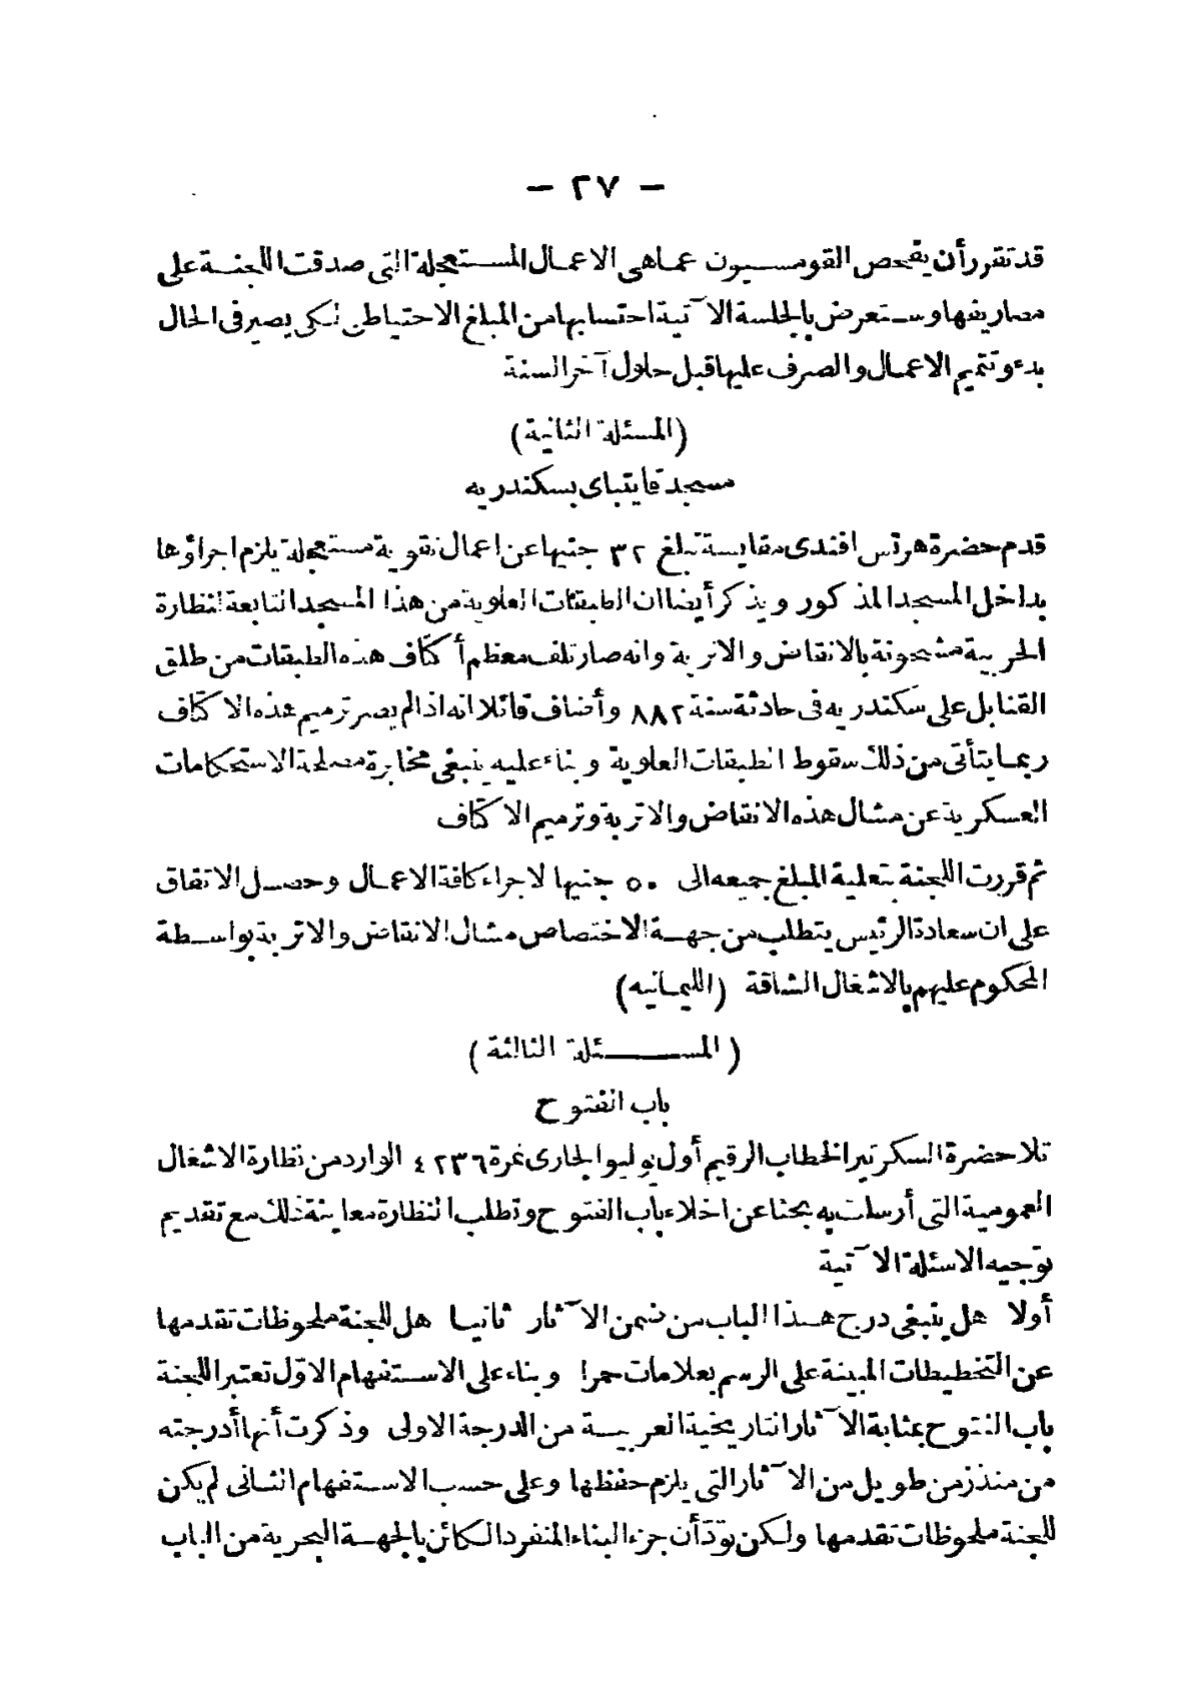 — ٢٧ —
قد تقرر أن يفحص القومسيون عما هى الاعمال المستعجلة التى صدقت اللجنة على
مصاريفها وستعرض بالجلسة الآتية احتسابها من المبلغ الاحتياطى لكى يصير فى الحال
بدء وتتميم الاعمال والصرف عليها قبل حلول آخر السنة
(المسئلة الثانية)
مسجد قايتباى بسكندريه
قدم حضرة هرتس افندى مقايسة تبلغ ٣٢ جنيها عن اعمال تقوية مستعجلة يلزم اجراؤها
بداخل المسجد المذكور ويذكر أيضا ان الطبقات العلوية من هذا المسجد التابعة لنظارة
الحربية مشحونة بالانقاض والاتربة وانه صار تلف معظم أكتاف هذه الطبقات من طلق
القنابل على سكندريه فى حادثة سنة ٨٨٢ وأضاف قائلا انه اذا لم يصر ترميم هذه الاكتاف
ربما يتأتى من ذلك سقوط الطبقات العلوية وبناء عليه ينبغى مخابرة مصلحة الاستحكامات
العسكرية عن مشال هذه الانقاض والاتربة وترميم الاكتاف
ثم قررت اللجنة بتعلية المبلغ جميعه الى ٥٠ جنيها لاجراء كافة الاعمال وحصل الاتفاق
على ان سعادة الرئيس يتطلب من جهة الاختصاص مشال الانقاض والاتربة بواسطة
المحكوم عليهم بالاشغال الشاقة (الليمانيه)
(المسئلة الثالثة)
باب الفتوح
تلا حضرة السكرتير الخطاب الرقيم أول يوليو الجارى نمرة ٤٢٣٦ الوارد من نظارة الاشغال
العمومية التى أرسلت به بحثا عن اخلاء باب الفتوح وتطلب النظارة معاينة ذلك مع تقديم
توجيه الاسئلة الآتية
أولا هل ينبغى درج هذا الباب من ضمن الآثار ثانيا هل للجنة ملحوظات تقدمها
عن التخطيطات المبينة على الرسم بعلامات حمرا وبناء على الاستفهام الاول تعتبر اللجنة
باب الفتوح بمثابة الآثار التاريخية العربية من الدرجة الاولى وذكرت أنها أدرجته
من منذ زمن طويل من الآثار التى يلزم حفظها وعلى حسب الاستفهام الثانى لم يكن
للجنة ملحوظات تقدمها ولكن تودّ أن جزء البناء المنفرد الكائن بالجهة البحرية من الباب